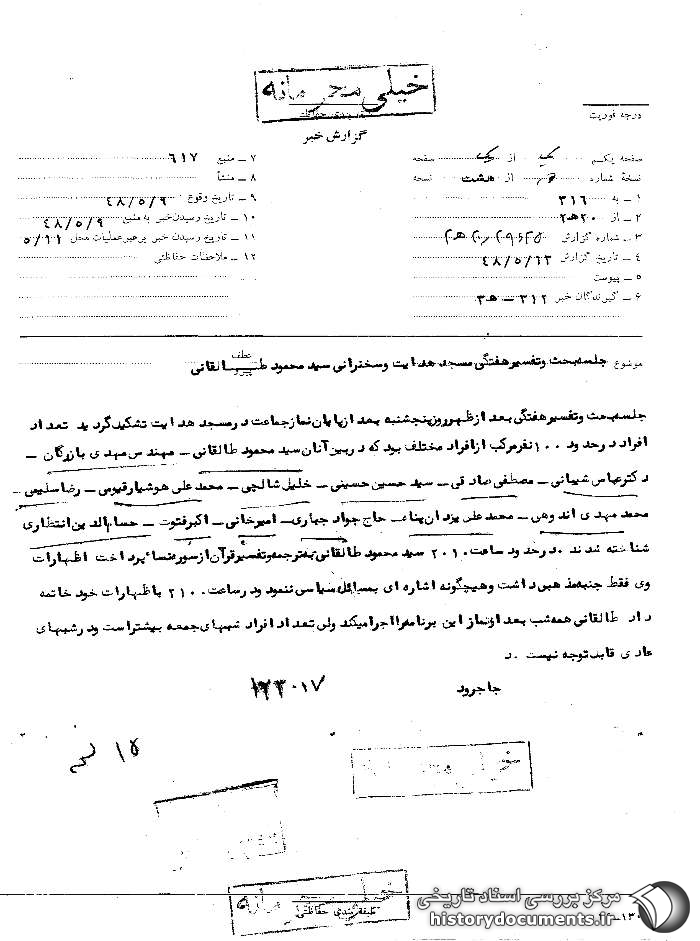 خیلی محرمانه
درجه فوریت
گزارش خبر
صفحه یکم از یک صفحه
نسخهٔ شماره از هشت نسخه
۱ ـ به ۳۱۶
۲ ـ از ۲۰ه۲
۳ ـ شماره گزارش
۴ ـ تاریخ گزارش ۴۸/۵/۱۳
۵ ـ پیوست
۶ ـ گیرندگان خبر ۳۱۲ ـ ه۳
۷ ـ منبع ۶۱۷
۸ ـ منشأ
۹ ـ تاریخ وقوع ۴۸/۵/۹
۱۰ ـ تاریخ رسیدن خبر به منبع ۴۸/۵/۹
۱۱ ـ تاریخ رسیدن خبر برهبر عملیات محل ۵/۱۱
۱۲ ـ ملاحظات حفاظتی
موضوع جلسه بحث و تفسیر هفتگی مسجد هدایت و سخنرانی سید محمود طالقانی
عطف
پیرو
جلسه بحث و تفسیر هفتگی بعد از ظهر روز پنجشنبه بعد از پایان نماز جماعت در مسجد هدایت تشکیل گردید تعداد
افراد در حدود ۱۰۰ نفر مرکب از افراد مختلف بود که در بین آنان سید محمود طالقانی ـ مهندس مهدی بازرگان ـ
دکتر عباس شیبانی ـ مصطفی صادقی ـ سید حسین حسینی ـ خلیل شالچی ـ محمد علی هوشیار قیومی ـ رضا سلیمی ـ
محمد مهدی اندوهی ـ محمد علی یزدان پناه ـ حاج جواد جباری ـ امیرخانی ـ اکبر فتوت ـ حسام الدین انتظاری
شناخته شدند . در حدود ساعت ۲۰۱۰ سید محمود طالقانی بترجمه و تفسیر قرآن از سوره نساء پرداخت اظهارات
وی فقط جنبه مذهبی داشت و هیچگونه اشاره ای بمسائل سیاسی ننمود و در ساعت ۲۱۰۰ باظهارات خود خاتمه
داد طالقانی همه شب بعد از نماز این برنامه را اجرا میکند ولی تعداد افراد شبهای جمعه بیشتر است و در شبهای
عادی قابل توجه نیست . د
جاجرود
۱۲۳۰۱۷
۱۵
خیلی محرمانه
طبقه بندی حفاظتی
مرکز بررسی اسناد تاریخی
historydocuments.ir